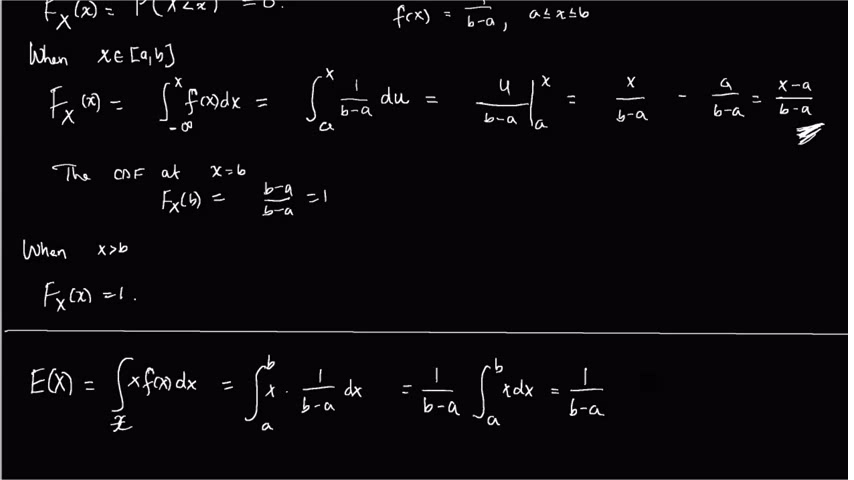 F_X(x) = P(X<x) = 0. f(x) = 1/(b-a), a≤x≤b
When x∈[a,b]
F_X(x) = ∫_{-∞}^{x} f(x)dx = ∫_{a}^{x} 1/(b-a) du = u/(b-a) |_{a}^{x} = x/(b-a) - a/(b-a) = (x-a)/(b-a)
The CDF at x=b
F_X(b) = (b-a)/(b-a) = 1
When x>b
F_X(x) = 1.
E(X) = ∫_{x} x f(x) dx = ∫_{a}^{b} x · 1/(b-a) dx = 1/(b-a) ∫_{a}^{b} x dx = 1/(b-a)